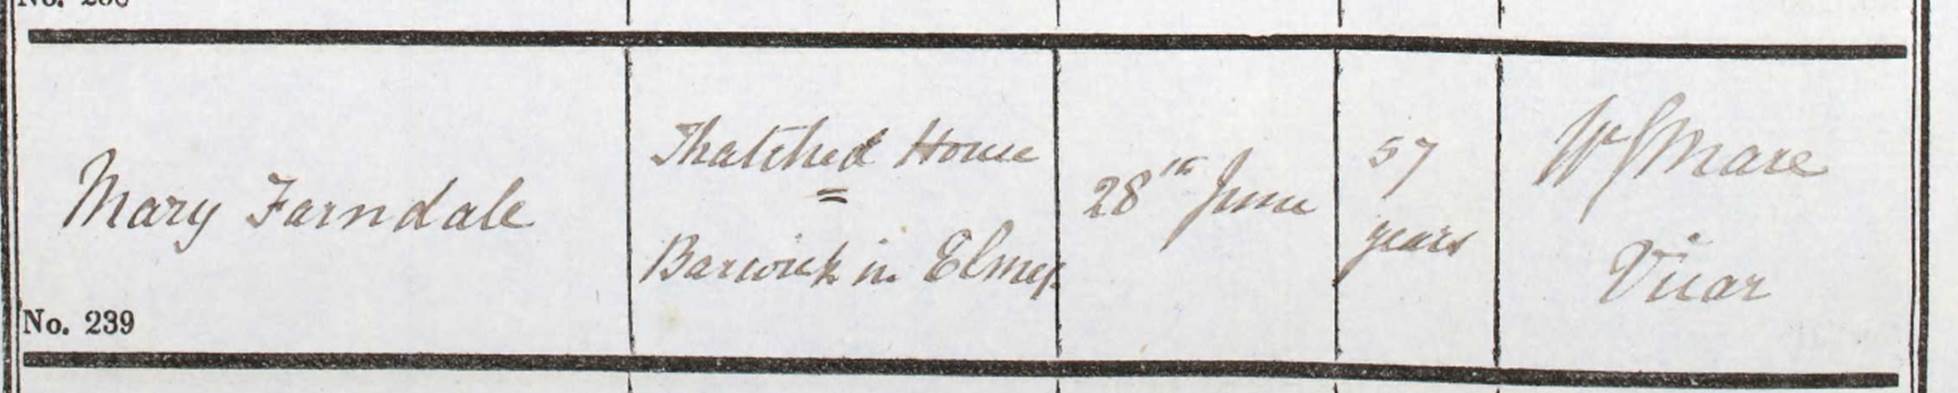 Mary Farndale
Thatched House
=
Barwick in Elmet
28th June
57
years
Vicar
No. 239